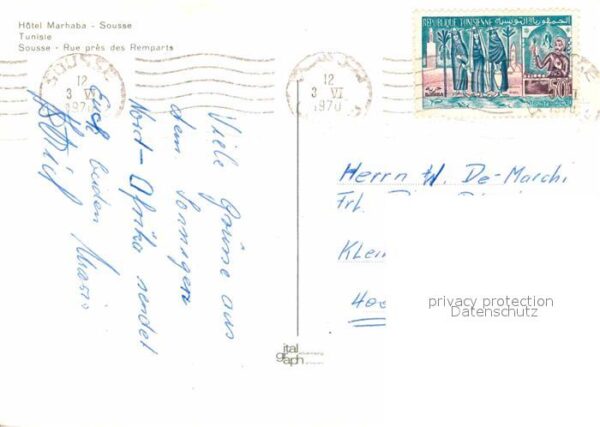 Hôtel Marhaba - Sousse
Tunisie
Sousse - Rue près des Remparts
SOUSSE
12
3 VI
1970
12
3 VI
1970
REPUBLIQUE TUNISIENNE الجمهورية التونسية
50
Viele Grüsse aus
dem Sonnigen
Nord-Afrika sendet
Euch beiden
Herrn W. De-Marchi
Frl.
Klei
Ho
privacy protection
Datenschutz
ital
graph